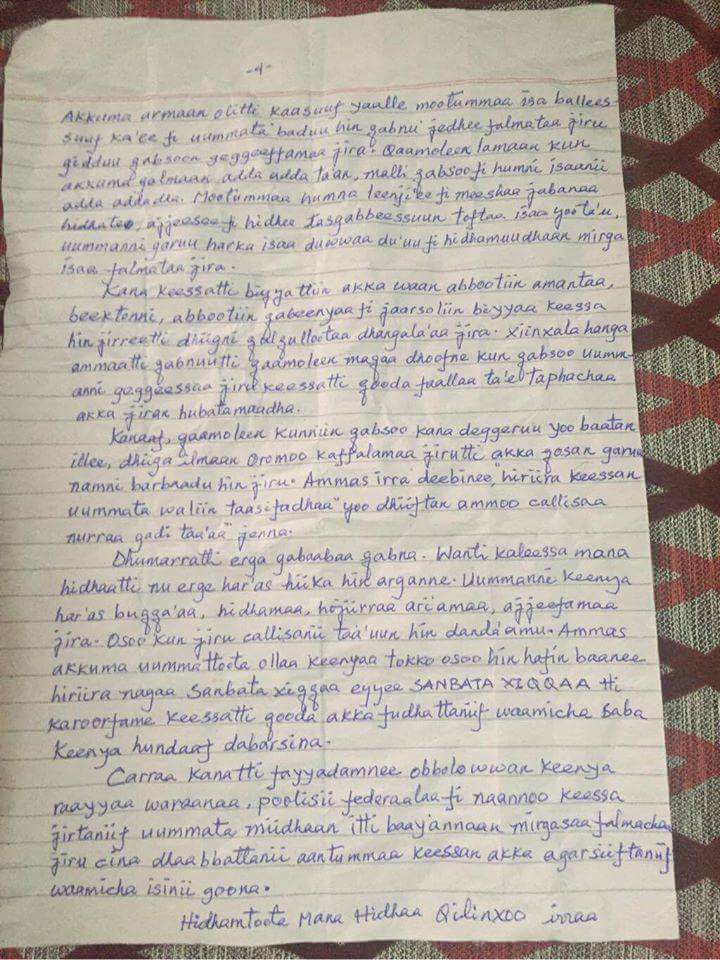 -4-
Akkuma armaan olitti kaasuuf yaalle mootummaa isa ballees-
suuf ka'ee fi uummata "baduu hin qabnu" jedhee falmataa jiru
gidduu qabsoon geggeeffamaa jira. Qaamoleen lamaan kun
akkuma galmaan adda adda ta'an, malli qabsoo fi humni isaanii
adda addadha. Mootummaa humna leenji'ee fi meeshaa qabanaa
hidhatee, ajjeesee fi hidhee tasgabbeessuun toftaa isaa yoo ta'u,
uummanni garuu harka isaa duwwaa du'uu fi hidhamuudhaan mirga
isaa falmataa jira.
Kana keessatti biyyattiin akka waan abbootiin amantaa,
beektonni, abbootiin qabeenyaa fi jaarsoliin biyyaa keessa
hin jirreetti dhiigni gulgullootaa dhangala'aa jira. Xiinxala hanga
ammaatti qabnuutti qaamoleen maqaa dhoofne kun qabsoo uumm-
anni geggeessaa jiru keessatti qooda faallaa ta'e taphachaa
akka jiran hubatamaadha.
Kanaaf, qaamoleen kunniin qabsoo kana deggeruu yoo baatan
illee, dhiiga ilmaan Oromoo kaffalamaa jirutti akka qosan garuu
namni barbaadu hin jiru. Ammas irra deebinee, "hiriira keessan
uummata waliin taasifadhaa" yoo dhiiftan ammoo callisaa
nurraa gadi taa'aa" jenna.
Dhumarratti erga gabaabaa qabna. Wanti kaleessa mana
hidhaatti nu erge har'as hiika hin arganne. Uummanni keenya
har'as buqqa'aa, hidhamaa, hojjirraa ari'amaa, ajjeefamaa
jira. Osoo kun jiru callisanii taa'uun hin danda'amu. Ammas
akkuma uummattoota ollaa keenyaa tokko osoo hin hafin baanee
hiriira nagaa Sanbata xiqqaa eyyee SANBATA XIQQAA Hi
karoorfame keessatti qooda akka fudhattaniif waamicha Saba
keenya hundaaf dabarsina.
Carraa kanatti fayyadamnee obbolowwan keenya
raayyaa waraanaa, poolisii federaalaa fi naannoo keessa
jirtaniif uummata miidhaan itti baay'annaan mirgasaa falmachaa
jiru cina dhaabbattanii aantummaa keessan akka agarsiiftaniif
waamicha isinii goona.
Hidhamtoota Mana Hidhaa Qilinxoo irraa